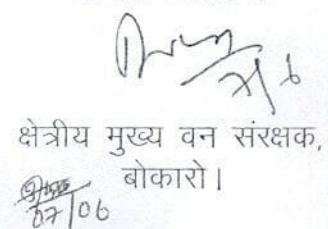 7/6
क्षेत्रीय मुख्य वन संरक्षक,
बोकारो।
07/06